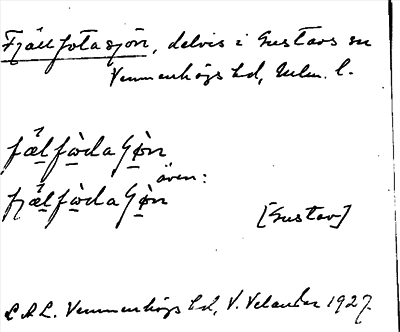 Fjällfotasjön, delvis i Gustavs sn
Vemmenhögs hd, Malm. l.
fæ̀lfòdaʃø̀n
även:
fjæ̀lfòdaʃø̀n
[Gustav]
L.A.L. Vemmenhögs hd, V. Velander 1927.